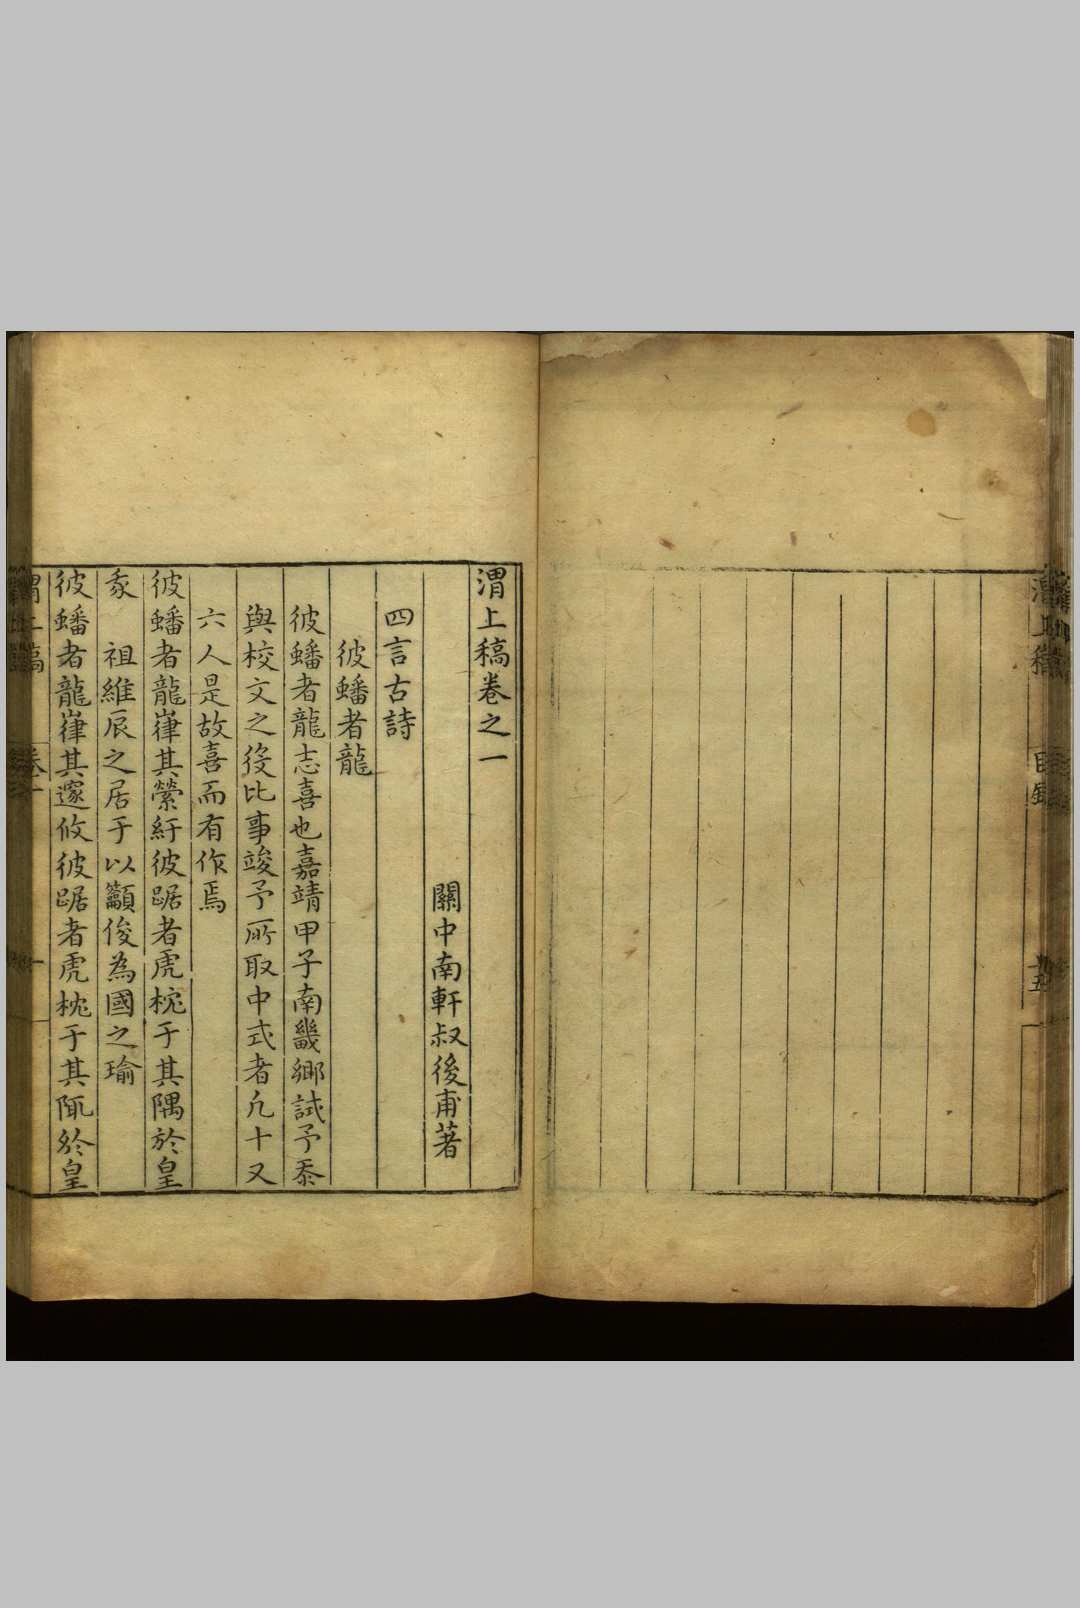 渭上稿
目錄
卅五
渭上稿卷之一
關中南軒叔後甫著
四言古詩
彼蟠者龍
彼蟠者龍志喜也嘉靖甲子南畿鄉試予忝
與校文之役比事竣予所取中式者凡十又
六人是故喜而有作焉
彼蟠者龍嵂其縈紆彼踞者虎枕于其隅於皇
豸 祖維辰之居于以籲俊為國之瑜
彼蟠者龍嵂其邃攸彼踞者虎枕于其陬於皇
渭上稿
卷一
一